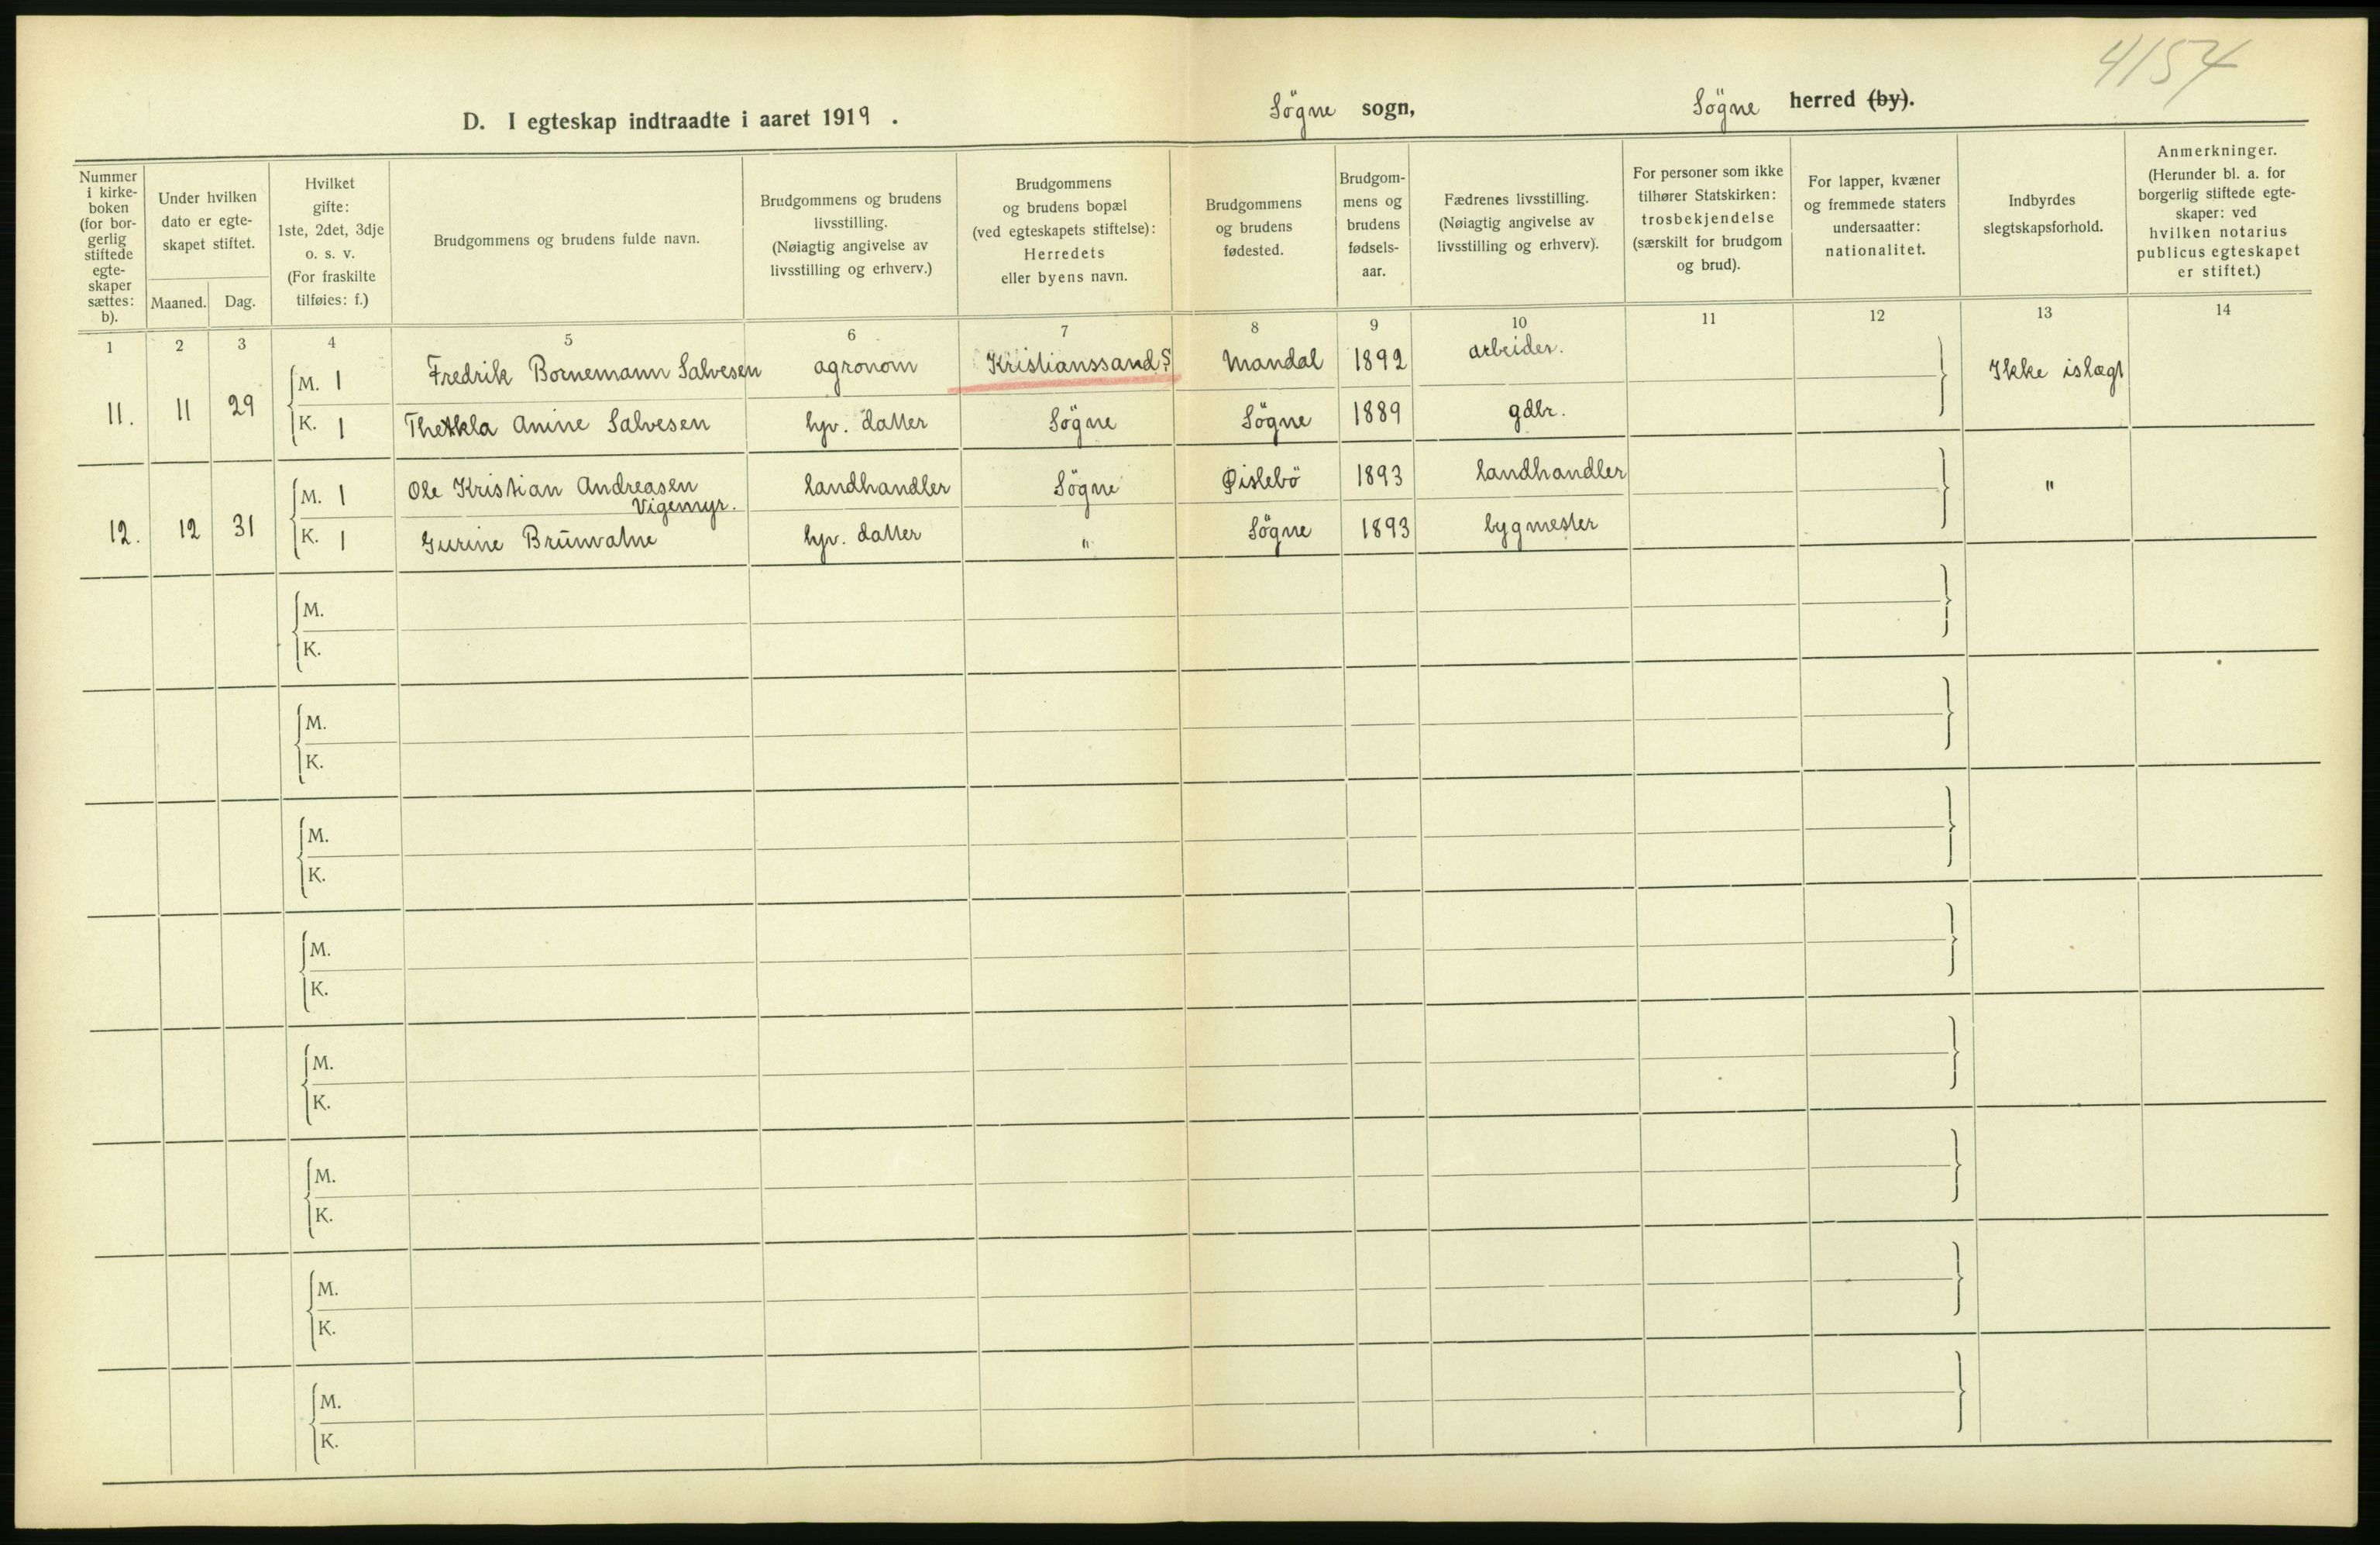 4154
D. I egteskap indtraadte i aaret 1919 . Søgne sogn, Søgne herred (by).
Nummer
i kirke-
boken
(for bor-
gerlig
stiftede
egte-
skaper
sættes:
b).
Under hvilken
dato er egte-
skapet stiftet.
Maaned. Dag.
Hvilket
gifte:
1ste, 2det, 3dje
o. s. v.
(For fraskilte
tilføies: f.)
Brudgommens og brudens fulde navn.
Brudgommens og brudens
livsstilling.
(Nøiagtig angivelse av
livsstilling og erhverv.)
Brudgommens
og brudens bopæl
(ved egteskapets stiftelse):
Herredets
eller byens navn.
Brudgommens
og brudens
fødested.
Brudgom-
mens og
brudens
fødsels-
aar.
Fædrenes livsstilling.
(Nøiagtig angivelse av
livsstilling og erhverv).
For personer som ikke
tilhører Statskirken:
trosbekjendelse
(særskilt for brudgom
og brud).
For lapper, kvæner
og fremmede staters
undersaatter:
nationalitet.
Indbyrdes
slegtskapsforhold.
Anmerkninger.
(Herunder bl. a. for
borgerlig stiftede egte-
skaper: ved
hvilken notarius
publicus egteskapet
er stiftet.)
1 2 3 4 5 6 7 8 9 10 11 12 13 14
11. 11 29
M. 1 Fredrik Bornemann Salvesen agronom Kristianssand S Mandal 1892 arbeider. Ikke islægt
K. 1 Thekla Anine Salvesen hjv. datter Søgne Søgne 1889 gdbr.
12. 12 31
M. 1 Ole Kristian Andreasen
Vigemyr. landhandler Søgne Øislebö 1893 landhandler "
K. 1 Gurine Brunvatne hjv. datter " Søgne 1893 bygmester
M.
K.
M.
K.
M.
K.
M.
K.
M.
K.
M.
K.
M.
K.
M.
K.